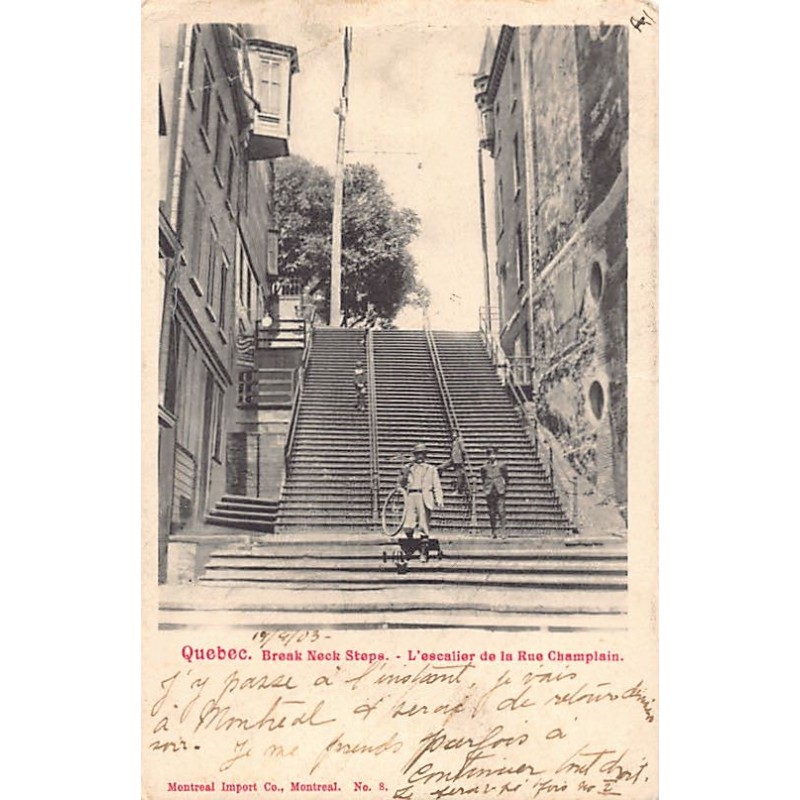 19/9/03-
Quebec. Break Neck Steps. - L'escalier de la Rue Champlain.
J'y passe à l'instant, je vais
à Montréal & serai de retour
soir. Je me prends parfois à
continuer tout droit.
Montreal Import Co., Montreal. No. 8.
Le ferai fois no 2